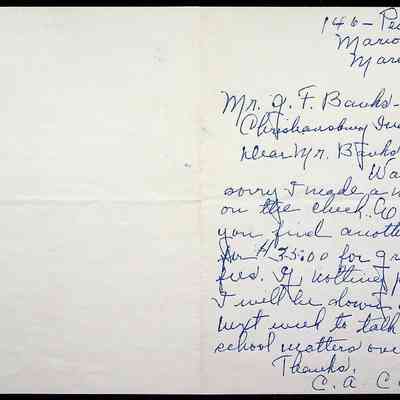 146 - Pe
Mario
Mar
Mr. J. F. Banks -
Christiansburg In
Dear Mr. Banks
Wa
sorry I made a m
on the check.
you find anothe
for $35.00 for g
fees. If nothing p
I will be down
next week to talk
school matters ove
Thanks.
C. A. C